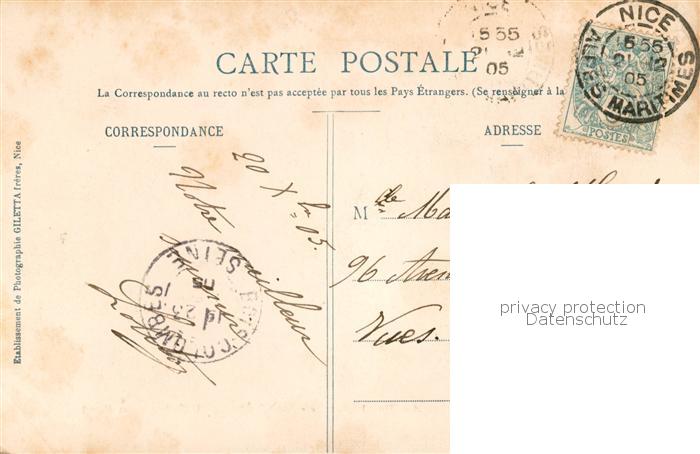 CARTE POSTALE
La Correspondance au recto n'est pas acceptée par tous les Pays Étrangers. (Se renseigner à la
CORRESPONDANCE
ADRESSE
NICE
5 55
21 12
05
ALPES MARITIMES
POSTES
5 55
05
20 Xbre 05.
Notre meilleur
souvenir
COLOMBES
SEINE
Mde Ma
96 Aven
Vues.
privacy protection
Datenschutz
Etablissement de Photographie GILETTA frères, Nice